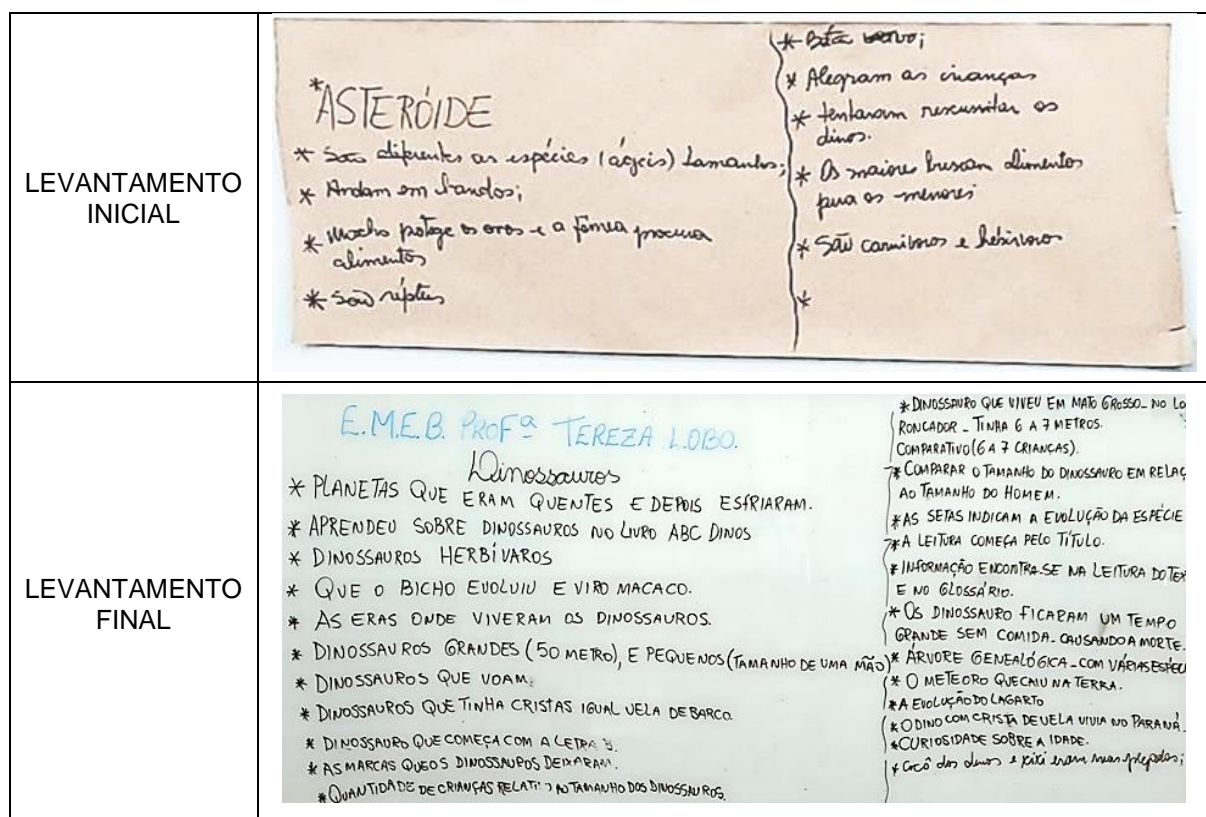 LEVANTAMENTO
INICIAL
*ASTERÓIDE
* São diferentes as espécies (ágeis) tamanhos;
* Andam em bandos;
* Macho protege os ovos e a fêmea procura
alimentos
* São répteis
* Bota
* Alegram as crianças
* tentaram ressussitar os
dinos.
* Os maiores buscam alimentos
para os menores
* São carnívoros e hébívoros
*
LEVANTAMENTO
FINAL
E.M.E.B. PROFª TEREZA LOBO.
Dinossauros
* PLANETAS QUE ERAM QUENTES E DEPOIS ESFRIARAM.
* APRENDEU SOBRE DINOSSAUROS NO LIVRO ABC DINOS
* DINOSSAUROS HERBÍVAROS
* QUE O BICHO EVOLUIU E VIRO MACACO.
* AS ERAS ONDE VIVERAM OS DINOSSAUROS.
* DINOSSAUROS GRANDES (50 METRO), E PEQUENOS (TAMANHO DE UMA MÃO)
* DINOSSAUROS QUE VOAM.
* DINOSSAUROS QUE TINHA CRISTAS IGUAL VELA DE BARCO.
* DINOSSAURO QUE COMEÇA COM A LETRA
* AS MARCAS QUE OS DINOSSAUROS DEIXARAM.
* QUANTIDADE DE CRIANÇAS AO TAMANHO DOS DINOSSAUROS.
* DINOSSAURO QUE VIVEU EM MATO GROSSO - NO LO
RONCADOR - TINHA 6 A 7 METROS.
COMPARATIVO (6 A 7 CRIANÇAS).
* COMPARAR O TAMANHO DO DINOSSAURO EM RELAÇ
AO TAMANHO DO HOMEM.
* AS SETAS INDICAM A EVOLUÇÃO DA ESPÉCIE
* A LEITURA COMEÇA PELO TÍTULO.
* INFORMAÇÃO ENCONTRA-SE NA LEITURA DO TEX
E NO GLOSSÁRIO.
* OS DINOSSAURO FICARAM UM TEMPO
GRANDE SEM COMIDA - CAUSANDO A MORTE.
* ÁRVORE GENEALÓGICA - COM VÁRIAS ESPÉCI
* O METEORO QUE CAIU NA TERRA.
* A EVOLUÇÃO DO LAGARTO
* O DINO COM CRISTA DE VELA VIVIA NO PARANÁ.
* CURIOSIDADE SOBRE A IDADE.
* Cocô dos dinos e xixi eram